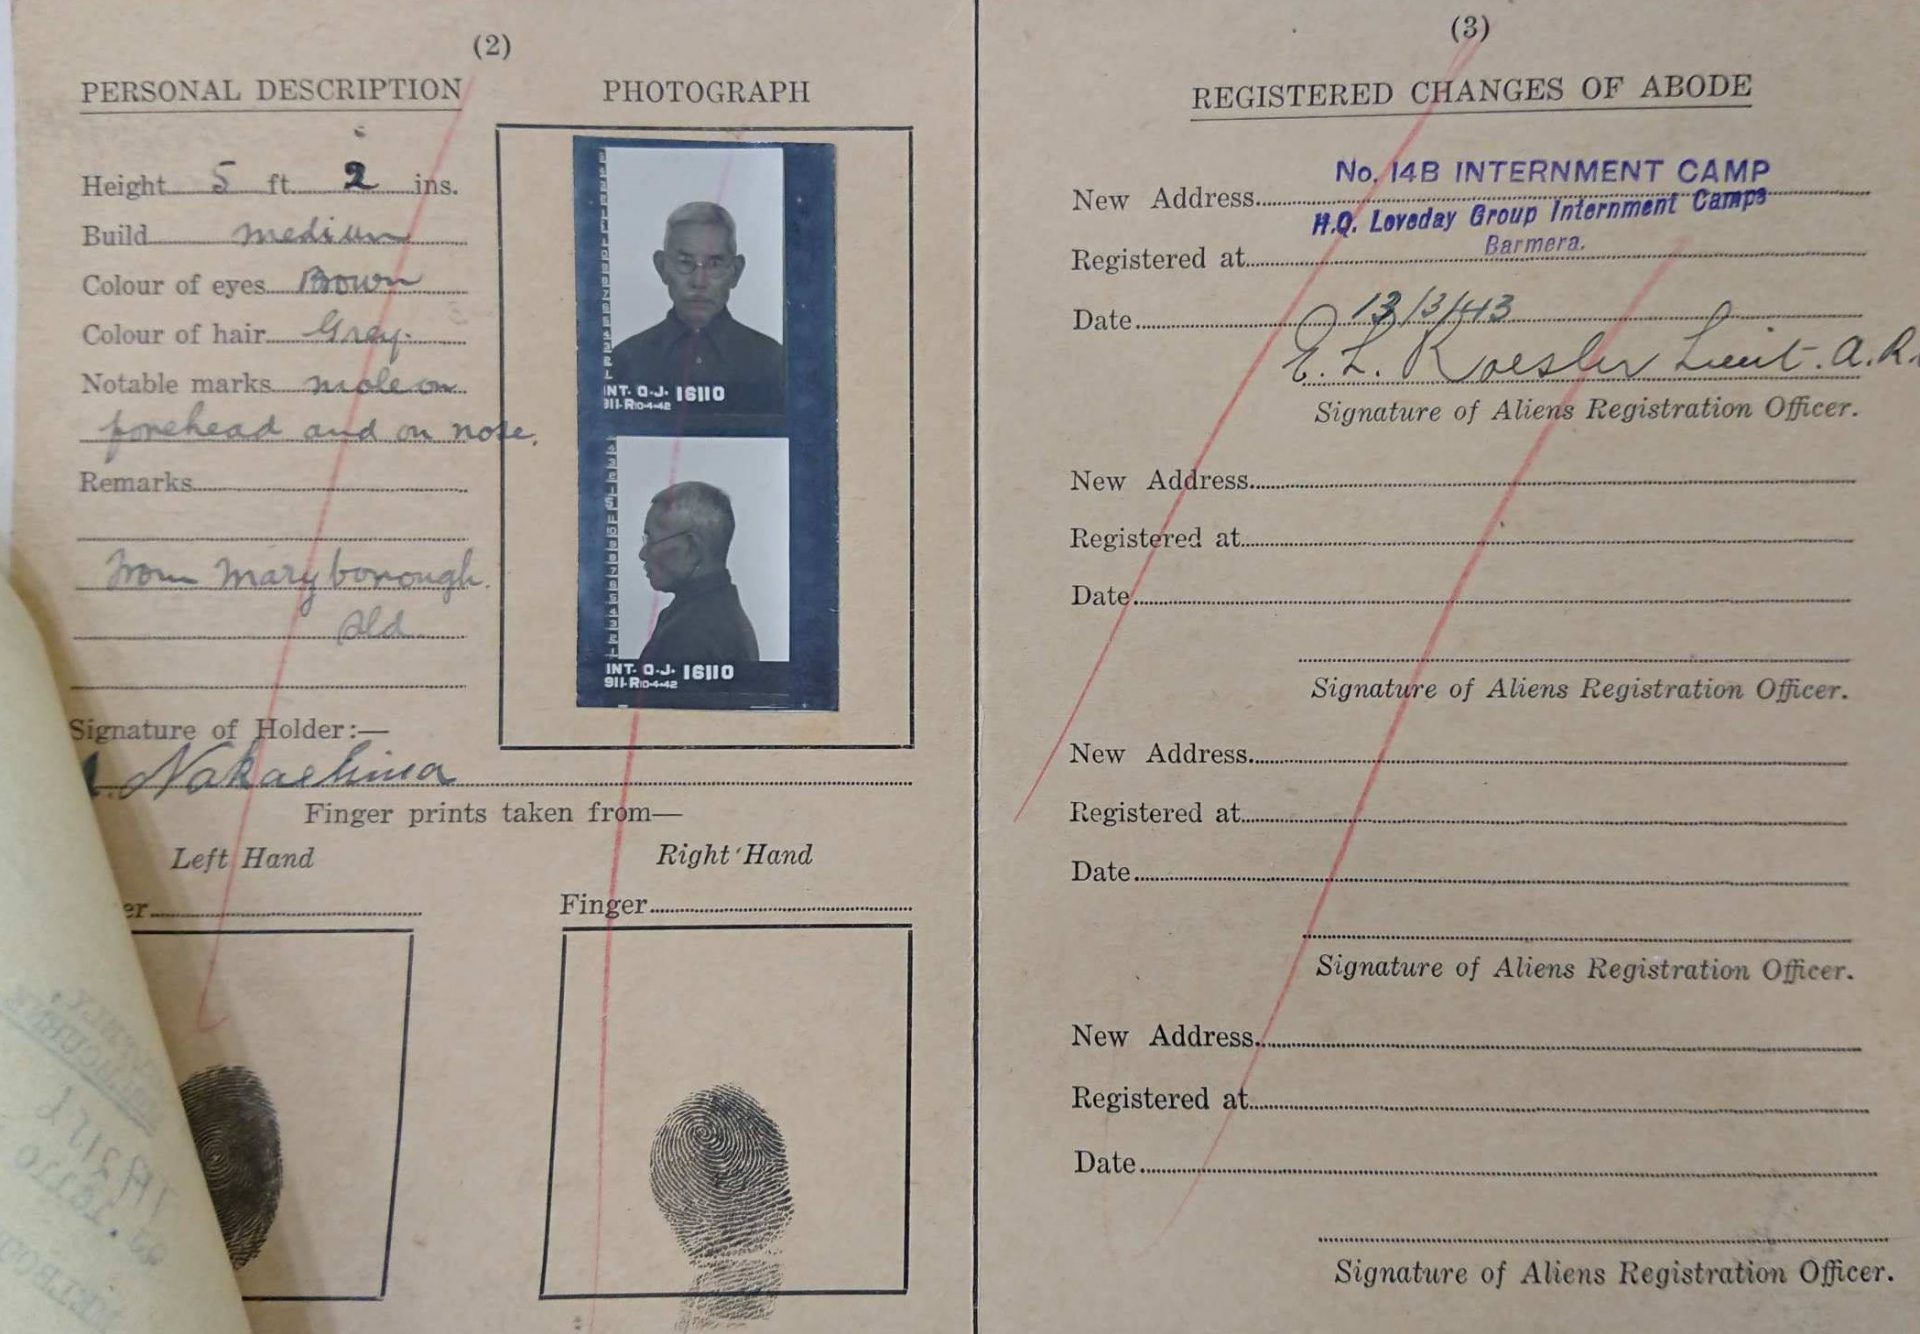 (2)
PERSONAL DESCRIPTION
Height 5 ft. 2 ins.
Build medium
Colour of eyes Brown
Colour of hair Grey.
Notable marks mole on
forehead and on nose.
Remarks
from Maryborough.
Qld
PHOTOGRAPH
INT. Q.J. 16110
911-R10-4-42
INT. Q.J. 16110
911-R10-4-42
Signature of Holder:—
Nakashima
Finger prints taken from—
Left Hand
Right Hand
er
Finger
(3)
REGISTERED CHANGES OF ABODE
No. 14B INTERNMENT CAMP
New Address
H.Q. Loveday Group Internment Camps
Barmera.
Registered at
Date 13/3/43
E. L. Koesler Lieut. A.R.
Signature of Aliens Registration Officer.
New Address
Registered at
Date
Signature of Aliens Registration Officer.
New Address
Registered at
Date
Signature of Aliens Registration Officer.
New Address
Registered at
Date
Signature of Aliens Registration Officer.